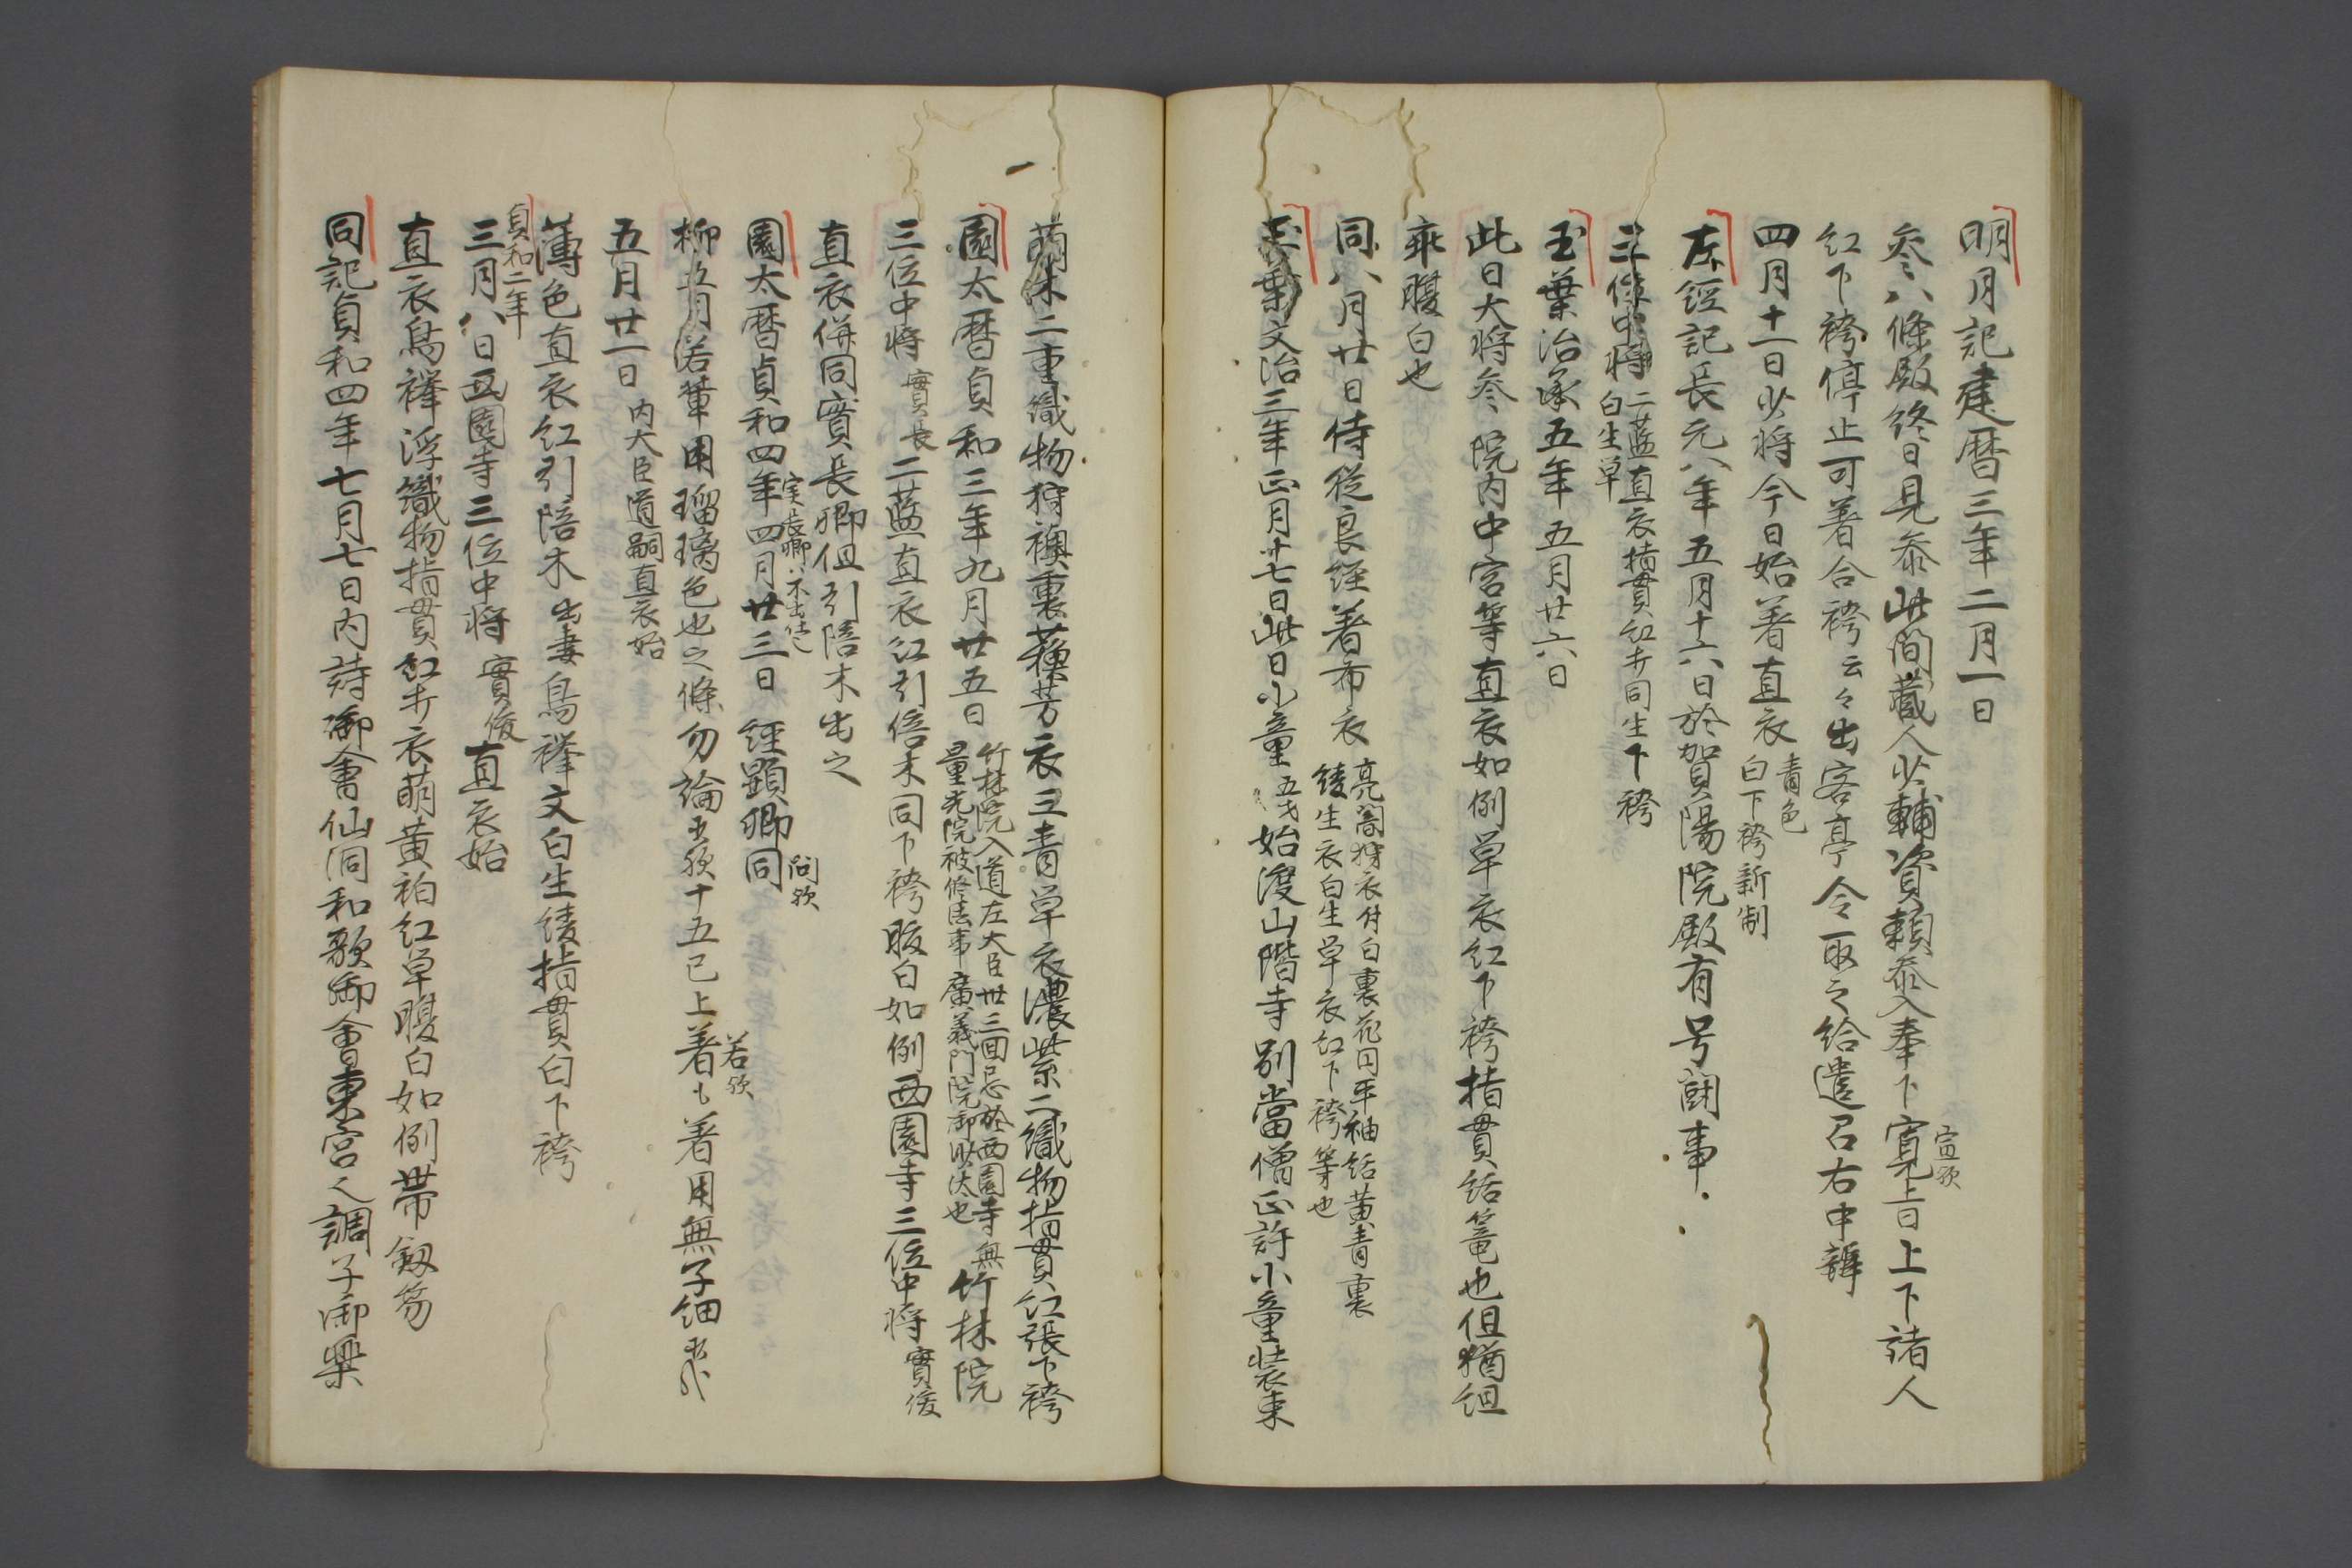 明月記建暦三年二月一日
参八條殿終日見参此間蔵人少輔資頼参入奉下寛上日上下諸人
宣歟
紅下袴停止可著合袴云々出客亭令一取之給遣召右中辨
四月十一日少将今日始著直衣
青色
白下袴新制
左経記長元八年五月十六日於賀陽院殿有号闘事
三位中将
二藍直衣指貫紅打同生下袴
白生単
玉葉治承五年五月廿六日
此日大将参院内中宮等直衣如例単衣紅下袴指貫括篭也但猶組
乖腹白也
同八月廿日侍従良経著布衣
亮闇狩衣付白裏花田平袖括黄青裏
綾生衣白生単衣紅下袴等也
玉葉文治三年正月十七日此日小童
五才
始渡山階寺別當僧正許小童装束
萠木二重織物狩襖裏蘓芳衣三青単衣濃紫二織物指貫紅張下袴
園太暦貞和三年九月廿五日
竹林院入道左大臣卅三回忌於西園寺無
量光院被修法事廣義門院御沙汰也
竹林院
三位中将
實長
二藍直衣紅引倍木同下袴腹白如例西園寺三位中将
實俊
直衣併同實長卿但引陪木出之
実長卿ハ不出之
園太暦貞和四年四月廿三日 経顕卿同
問歟
柳五月若輩用瑠璃色也之條勿論五歟十五已上著も著用無子細
若歟
五月廿一日
内大臣道嗣直衣始
薄色直衣紅引陪木出妻鳥襷文白生綾指貫白下袴
貞和二年
三月八日西園寺三位中将
實俊
直衣始
直衣鳥襷浮織物指貫紅打衣萌黄袙紅単腹白如例帯釼笏
同記貞和四年七月七日内詩御會仙洞和歌御會東宮之調子御楽